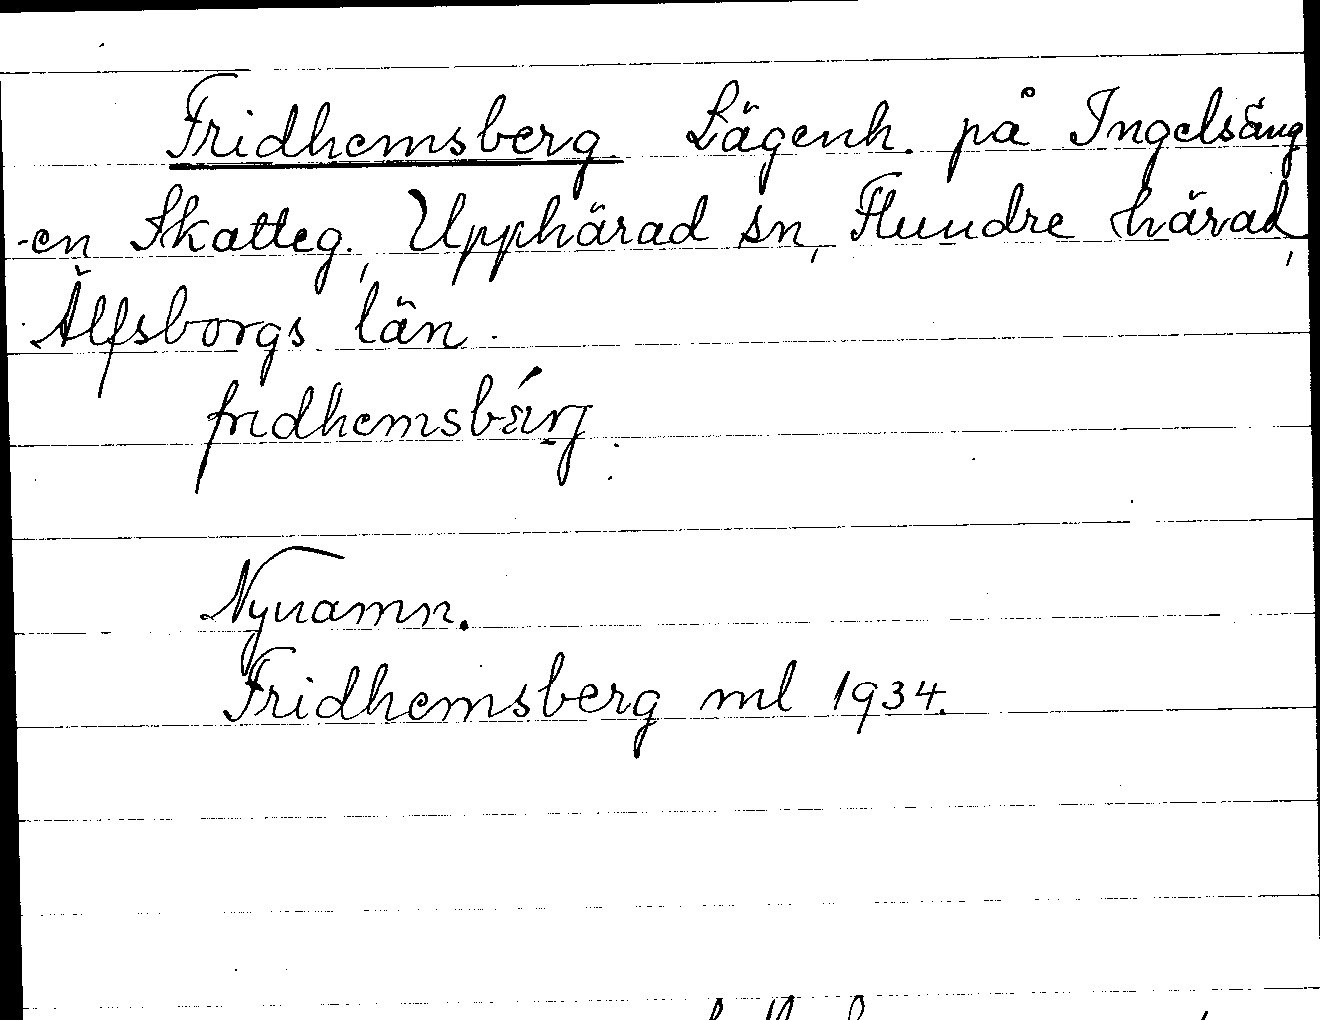 Fridhemsberg Lägenh. på Ingelsäng
-en Skatteg., Upphärad sn, Flundre härad,
Älfsborgs län.
Nynamn.
Fridhemsberg ml 1934.